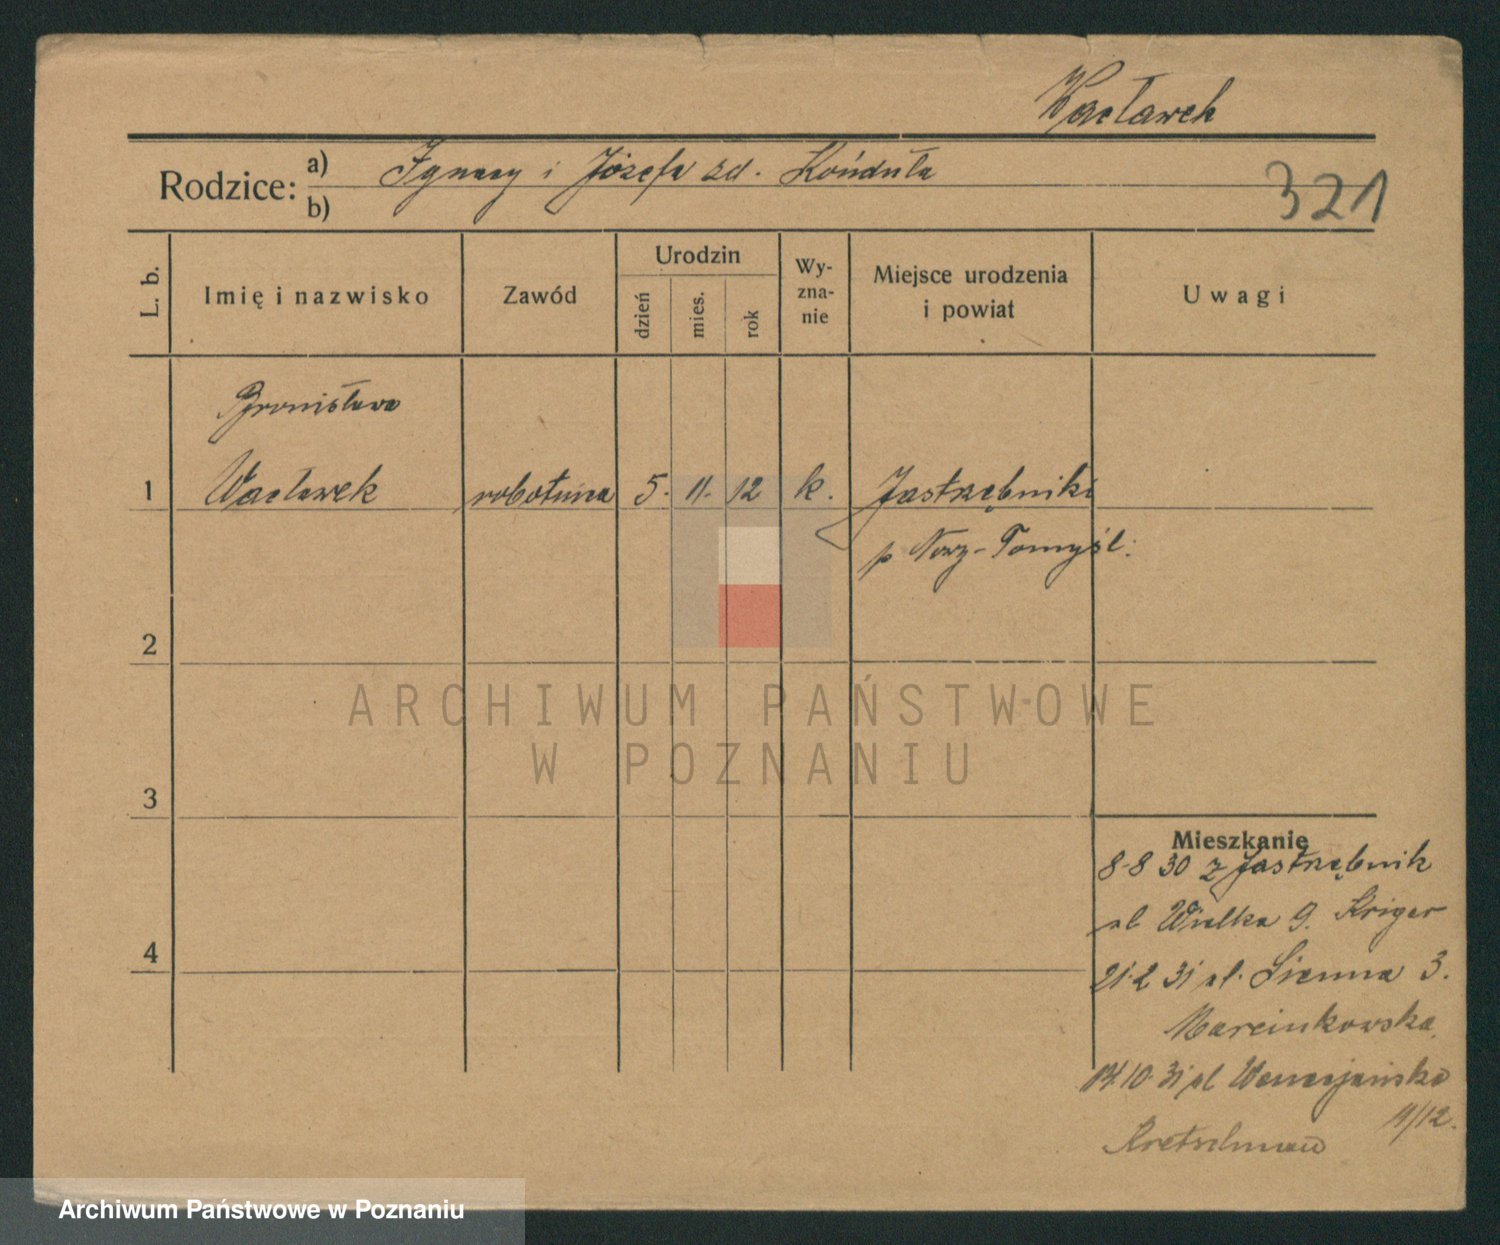 Wacławek
Rodzice: a) Ignacy i Józefa zd. Końduła
b)
321
L. b.
Imię i nazwisko
Zawód
Urodzin
dzień
mies.
rok
Wy-
zna-
nie
Miejsce urodzenia
i powiat
Uwagi
Bronisława
1 Wacławek robotnica 5. 11. 12 k. Jastrzębniki
p Nowy-Tomyśl.
2
ARCHIWUM PAŃSTWOWE
W POZNANIU
3
Mieszkanie
8-8 30 z Jastrzębnik
ul Wielka 9. Kriger
4
21.2 31 ul. Sienna 3.
Marcinkowska
14.10.31 ul Wenecjańska
11/12.
Kretschmann
Archiwum Państwowe w Poznaniu